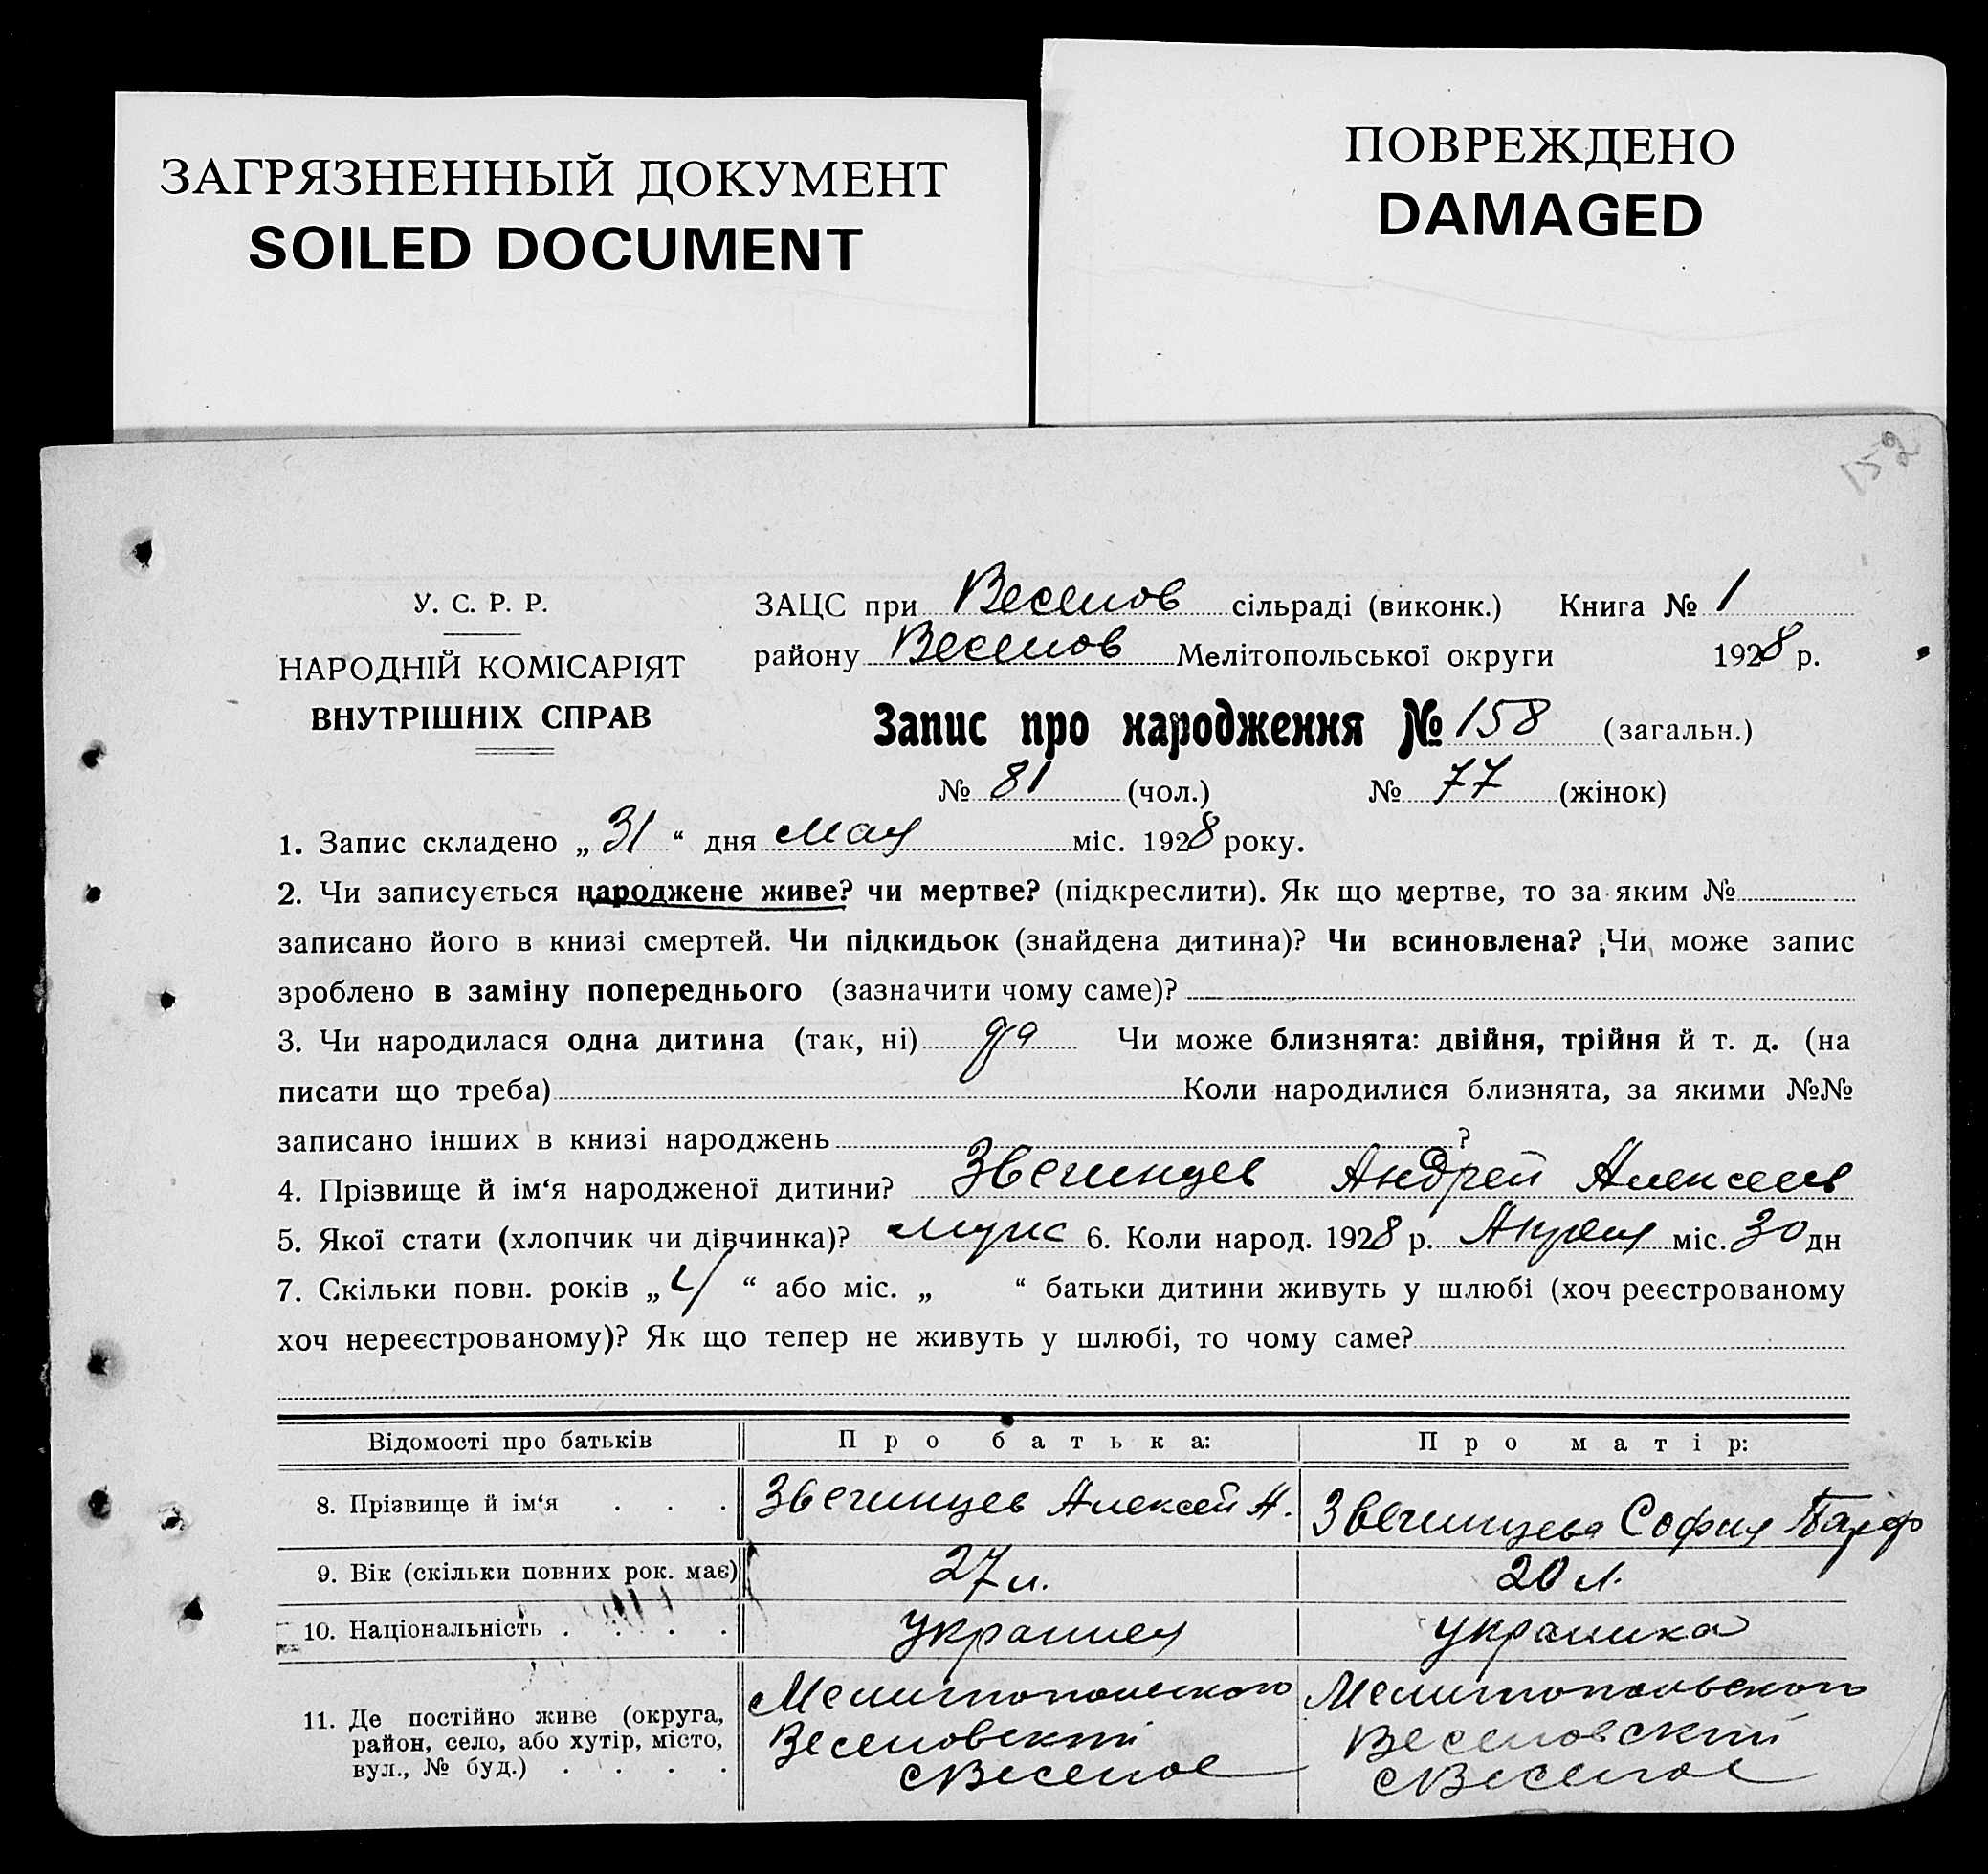 ЗАГРЯЗНЕННЫЙ ДОКУМЕНТ
SOILED DOCUMENT
ПОВРЕЖДЕНО
DAMAGED
152
У. С. Р. Р.
НАРОДНІЙ КОМІСАРІЯТ
ВНУТРІШНІХ СПРАВ
ЗАЦС при Веселов сільраді (виконк.) Книга № 1
району Веселов Мелітопольської округи 1928 р.
Запис про народження № 158 (загальн.)
№ 81 (чол.) № 77 (жінок)
1. Запис складено „ 31 “ дня Мая міс. 1928 року.
2. Чи записується народжене живе? чи мертве? (підкреслити). Як що мертве, то за яким №
записано його в книзі смертей. Чи підкидьок (знайдена дитина)? Чи всиновлена? Чи може запис
зроблено в заміну попереднього (зазначити чому саме)?
3. Чи народилася одна дитина (так, ні) да Чи може близнята: двійня, трійня й т. д. (на
писати що треба) Коли народилися близнята, за якими №№
записано інших в книзі народжень ?
4. Прізвище й ім‘я народженої дитини? Звегинцев Андрей Алексеев
5. Якої стати (хлопчик чи дівчинка)? муж 6. Коли народ. 1928 р. Апреля міс. 30 дн
7. Скільки повн. років „ 4 “ або міс. „ “ батьки дитини живуть у шлюбі (хоч реєстрованому
хоч нереєстрованому)? Як що тепер не живуть у шлюбі, то чому саме?
Відомості про батьків Про батька: Про матір:
8. Прізвище й ім‘я . . . Звегинцев Алексей А. Звегинцева София Парф
9. Вік (скільки повних рок. має) 27 л. 20 л.
10. Національність . . . . Украинец Украинка
11. Де постійно живе (округа,
район, село, або хутір, місто,
вул., № буд.) . . . .
Мелитопольского
Веселовский
с Веселое
Мелитопольского
Веселовский
с Веселое